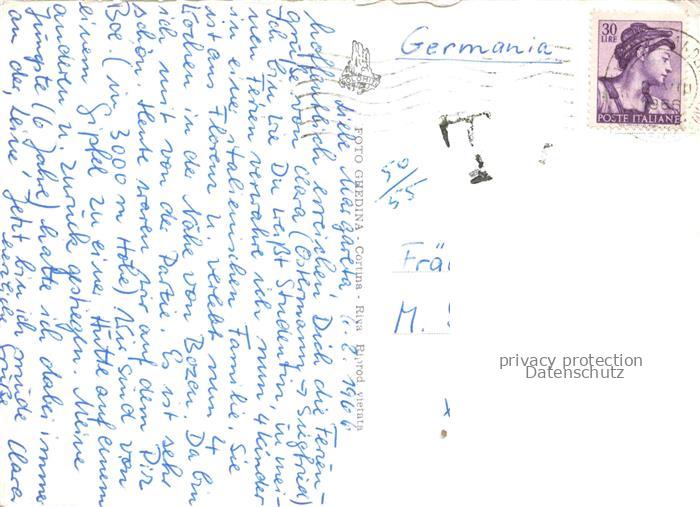 Liebe Margareta, 1.8.1966
hoffentlich erreichen Dich die Ferien-
grüße von Clara (Ostermann → Siegfried)
Ich bin wie Du weißt Studentin, in mei-
nen Ferien verwahre ich nun 4 Kinder
in einer italienischen Familie. Sie
ist aus Florenz u. verlebt nun 4
Wochen in der Nähe von Bozen. Da bin
ich mit von der Partie. Es ist sehr
schön. Heute waren wir auf dem Piz
Boe. (in 3000 m Höhe) Wir sind von
einem Gipfel zu einer Hütte auf einem
anderen u. zurück gestiegen. Meine
Jüngste (6 Jahre) hatte ich dabei immer
an der "Leine". Jetzt bin ich müde
herzliche Grüße Clara
FOTO GHEDINA - Cortina - Riva Riprod. vietata
Germania
30
LIRE
POSTE ITALIANE
1966
T
50/55
Frä
M.
privacy protection
Datenschutz